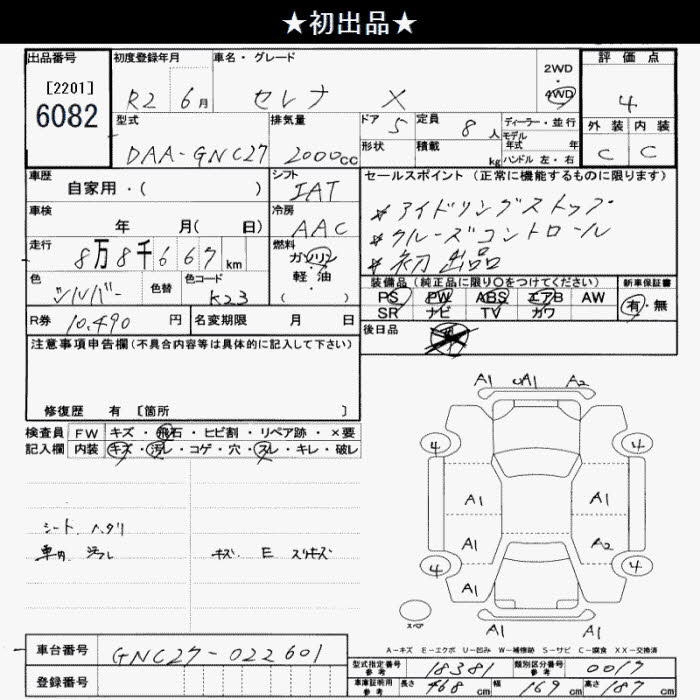 ★初出品★
出品番号 初度登録年月 車名・グレード 2WD 評価点
[2201]
6082
R2 6月 セレナ X 4WD 4
型式 排気量 ドア 5 定員 8人 ディーラー・並行 外装 内装
モデル
年式 年
DAA-GNC27 2000cc 形状 積載 kg ハンドル 左・右 C C
車歴 シフト セールスポイント (正常に機能するものに限ります)
自家用・( ) IAT
*アイドリングストップ
車検 冷房
年 月( 日) AAC
*クルーズコントロール
走行 燃料
8万8千667km ガソリン
*初出品
軽・油
( )
色 色替 色コード
シルバー K23
装備品(純正品に限り○をつけてください) 新車保証書
PS PW ABS エアB AW 有・無
SR ナビ TV カワ
R券 10,490円 名変期限 月 日
後日品
注意事項申告欄(不具合内容等は具体的に記入して下さい)
修復歴 有 [箇所 ]
検査員 FW キズ・飛石・ヒビ割・リペア跡・×要
記入欄 内装 キズ・汚レ・コゲ・穴・スレ・キレ・破レ
シート ヘタリ
車内 汚レ キズ E スリキズ
A1 A1 A2
4 4
A1 A1
A1 A2
4 4
A1
スペア A1
A-キズ E-エクボ U-凹み W-補修跡 S-サビ C-腐食 XX-交換済
車台番号 GNC27-022601
登録番号
型式指定番号 参考 18381 類別区分番号 参考 0017
車庫証明用 参考 長さ 468cm 幅 169cm 高さ 187cm